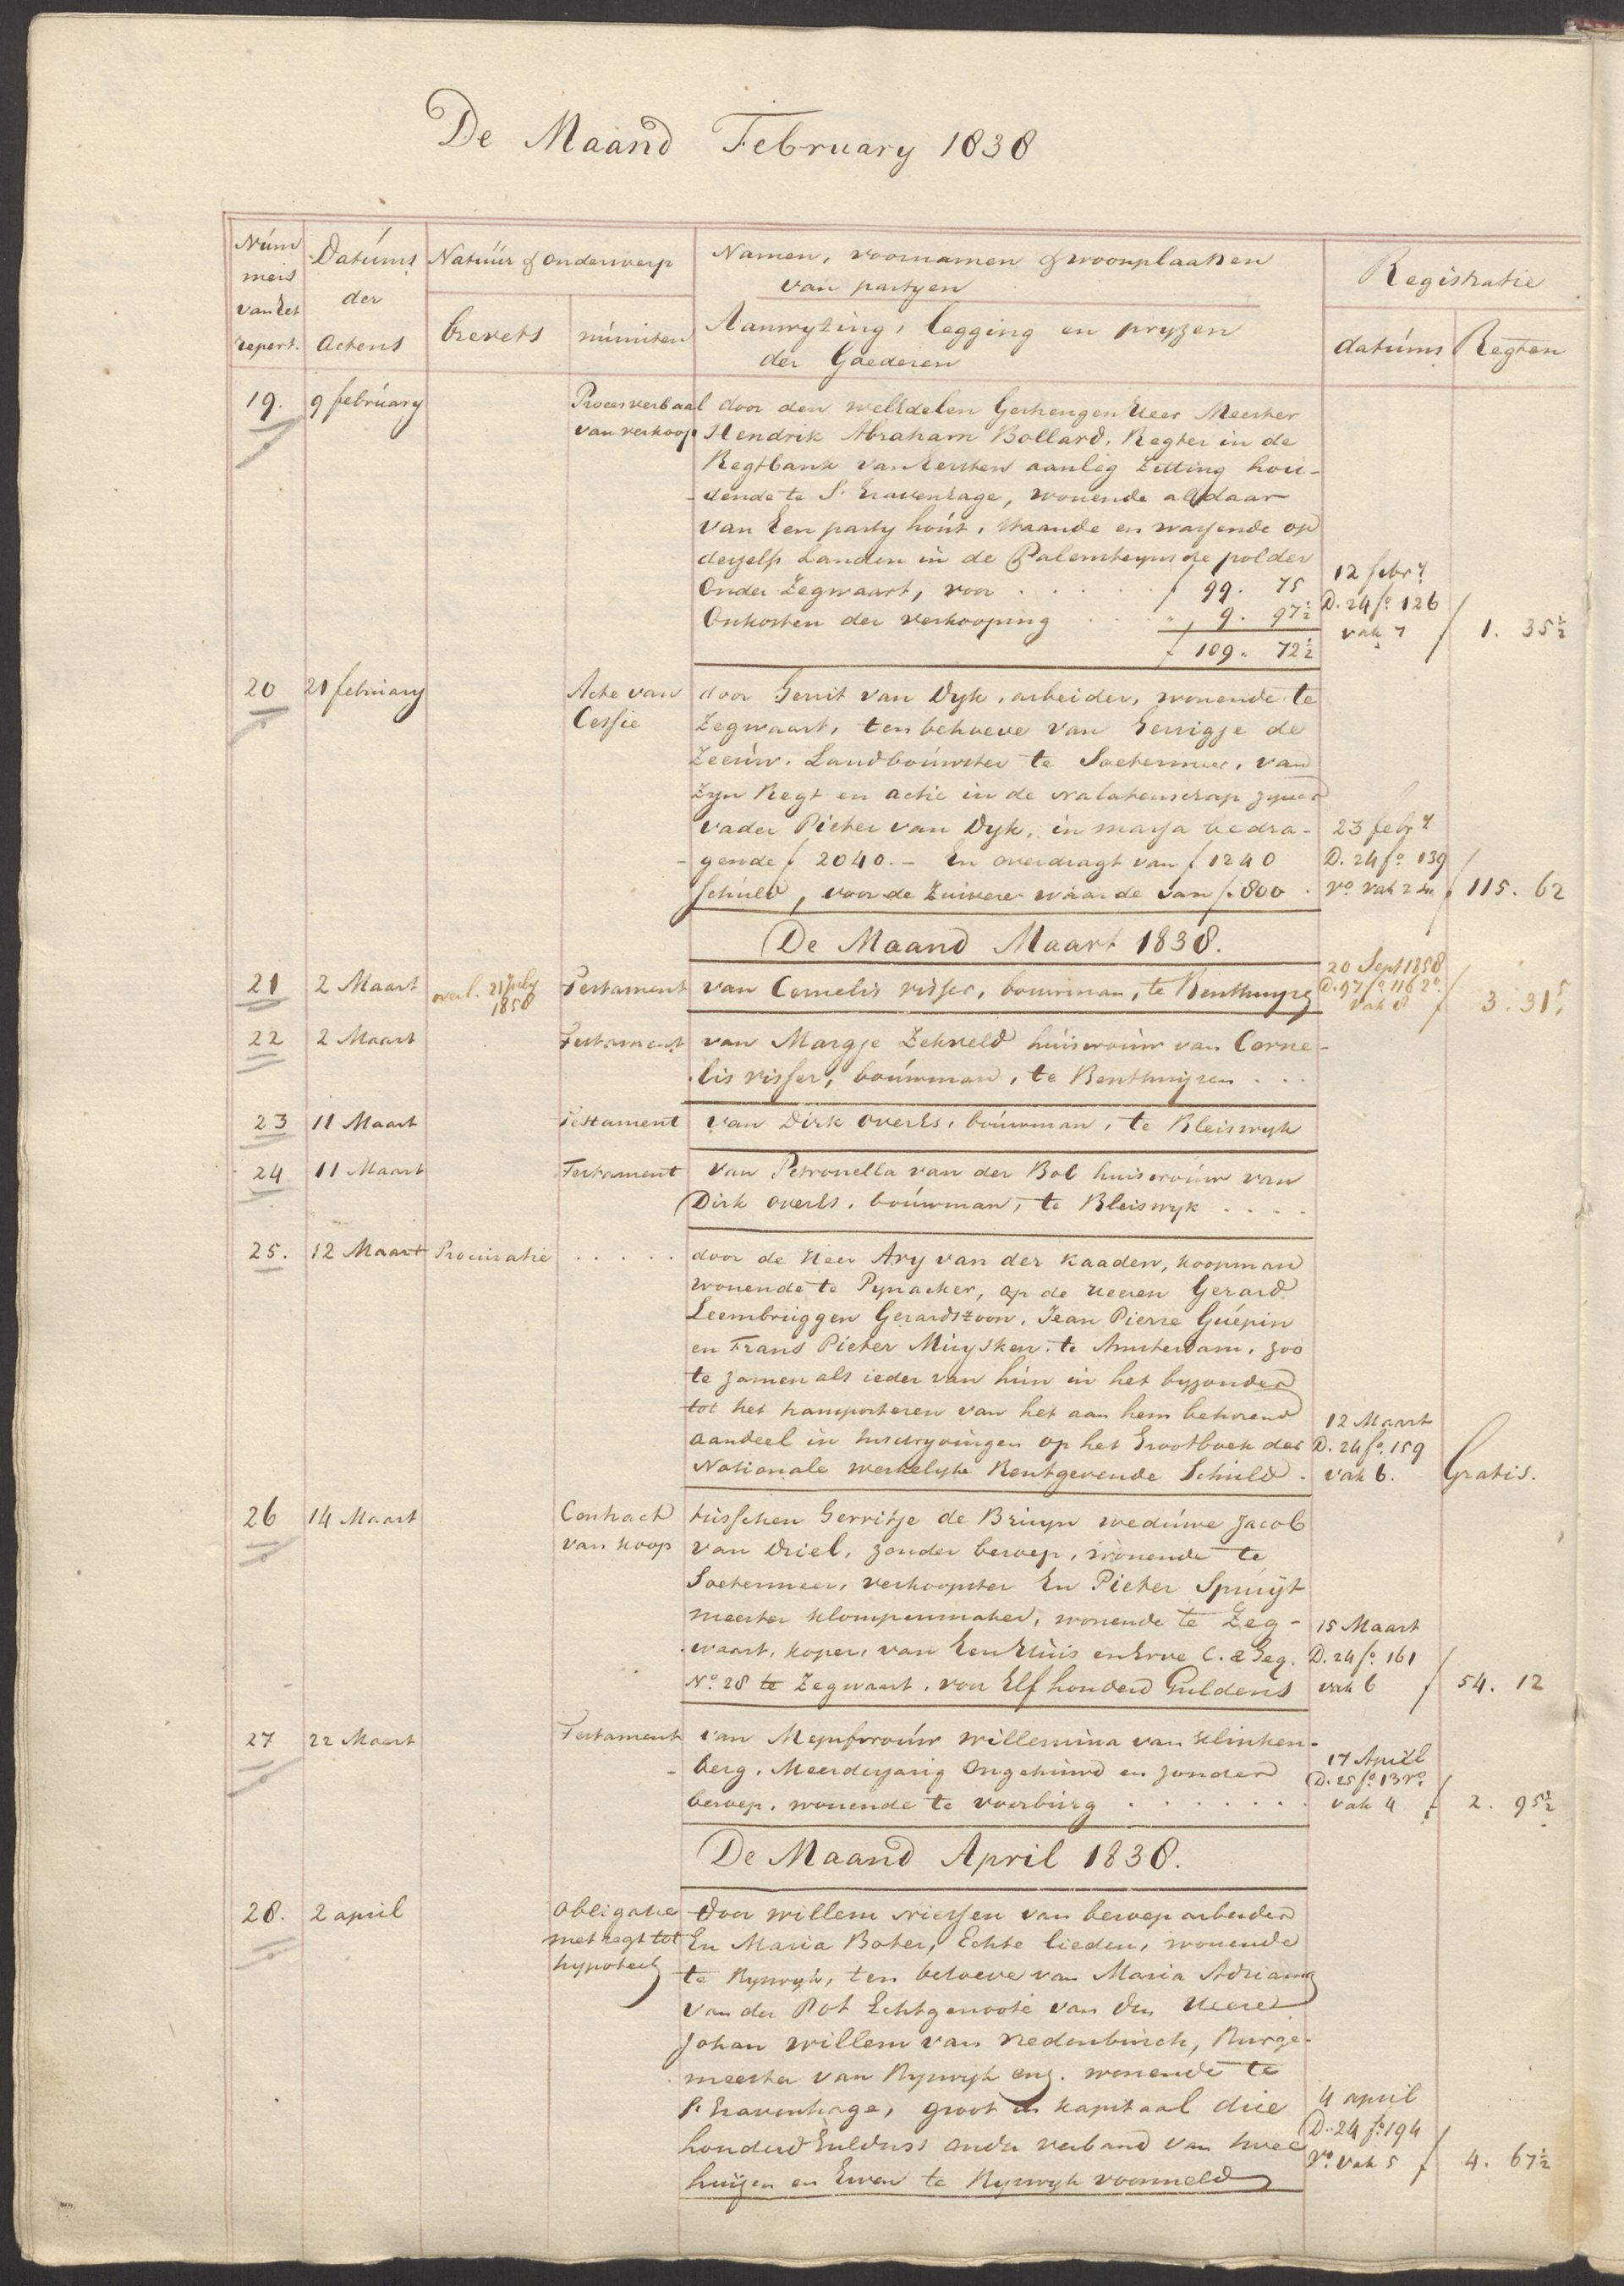 De Maand February 1838
Núm
mers
van het
repert.
Datúms
der
Actens
Natúúr of Onderwerp
brevets
minúten
Namen, voornamen & woonplaatsen
van partyen
Aanwyzing, legging en pryzen
der Goederen
Registratie
datúms
Regten
19. 9 februúary
Procesverbaal
van verkoop
door den welEdelen Gestrengen Heer Meester
Hendrik Abraham Bollard, Regter in de
Regtbank van Eersten aanleg zitting hou-
-dende te S. Gravenhage, wonende aldaar
van Een party hoút, staande en wassende op
deszelfs Landen in de Palensteynsche polder
Onder Zegwaart, voor . . . . . f 99. 75
Onkosten der verkooping . . . . „ 9. 97½
f 109. 72½
12 febry
D. 24 fo. 126
vak 7
f 1. 35½
20 21 february
Acte van
Cessie
door Gerrit van Dyk, arbeider, wonende te
Zegwaart, ten behoeve van Gerrigje de
Zeeúw, Landboúwster te Soetermeer, van
zyn Regt en actie in de nalatenschap zyner
vader Pieter van Dyk, in massa bedra-
-gende f 2040.- En overdragt van f 1240
schúld, voor de zuivere waarde van f. 800 .
23 febry
D. 24 fo. 139
vo. vak 2 en
f 115. 62
De Maand Maart 1838.
21 2 Maart
overl. 21 July
1858
Testament
van Cornelis visser, bouwman, te Benthuyzen
20 Sept 1858
D. 97 fo. 116 2o.
vak 8
f 3. 31 5
22 2 Maart
Testament
van Margje Zekveld húisvroúw van Corne-
lis visser, boúwman, te Benthuyzen . . .
23 11 Maart
Testament
van Dirk overes, boúwman, te Bleiswyk
24 11 Maart
Testament
van Petronella van der Bol huisvroúw van
Dirk overes, boúwman, te Bleiswyk . . . .
25. 12 Maart Procúratie . . . . .
door de Heer Ary van der Kaaden, koopman
wonende te Pynacker, op de Heeren Gerard
Leembrúggen Gerardszoon, Jean Pierre Guépin
en Frans Pieter Múysken, te Amsterdam, zoo
te zamen als ieder van hún in het byzonder
tot het transporteren van het aan hem behorend
aandeel in Inschryvingen op het Grootboek der
Nationale werkelyke Rentgevende Schúld .
12 Maart
D. 24 fo. 159
vak 6.
Gratis.
26 14 Maart
Contract
van koop
tússchen Gerritje de Brúyn wedúwe Jacob
van Driel, zonder beroep, wonende te
Soetermeer, verkoopster En Pieter Sprúijt
meester klompenmaker, wonende te Zeg-
waart, koper, van Een Húis en Erve C. & Geq.
No. 28 te Zegwaart, voor Elf honderd Guldens
15 Maart
D. 24 fo. 161
vak 6
f 54. 12
27 22 Maart
Testament
van Mejufvroúw willemina van Klinken-
-berg, Meerderjarig Ongehúwd en zonder
beroep, wonende te voorbúrg . . . . . . .
17 April
D. 25 fo. 13 vo.
vak 4
f 2. 95½
De Maand April 1838.
28. 2 april
Obligatie
met regt tot
hypoteek
door willem van beroep arbeider
En Maria Boter, Echte lieden, wonende
te Ryswyk, ten behoeve van Maria Adriana
van der Pot Echtgenoote van den Heere
Johan willem van Vredenbúrch, Burge-
meester van Ryswyk enz. wonende te
S. Gravenhage, groot in kapitaal drie
honderd Guldens onder verband van twee
huizen en Erven te Ryswyk voormeld
4 april
D. 24 fo. 194
vo. vak 5
f 4. 67½